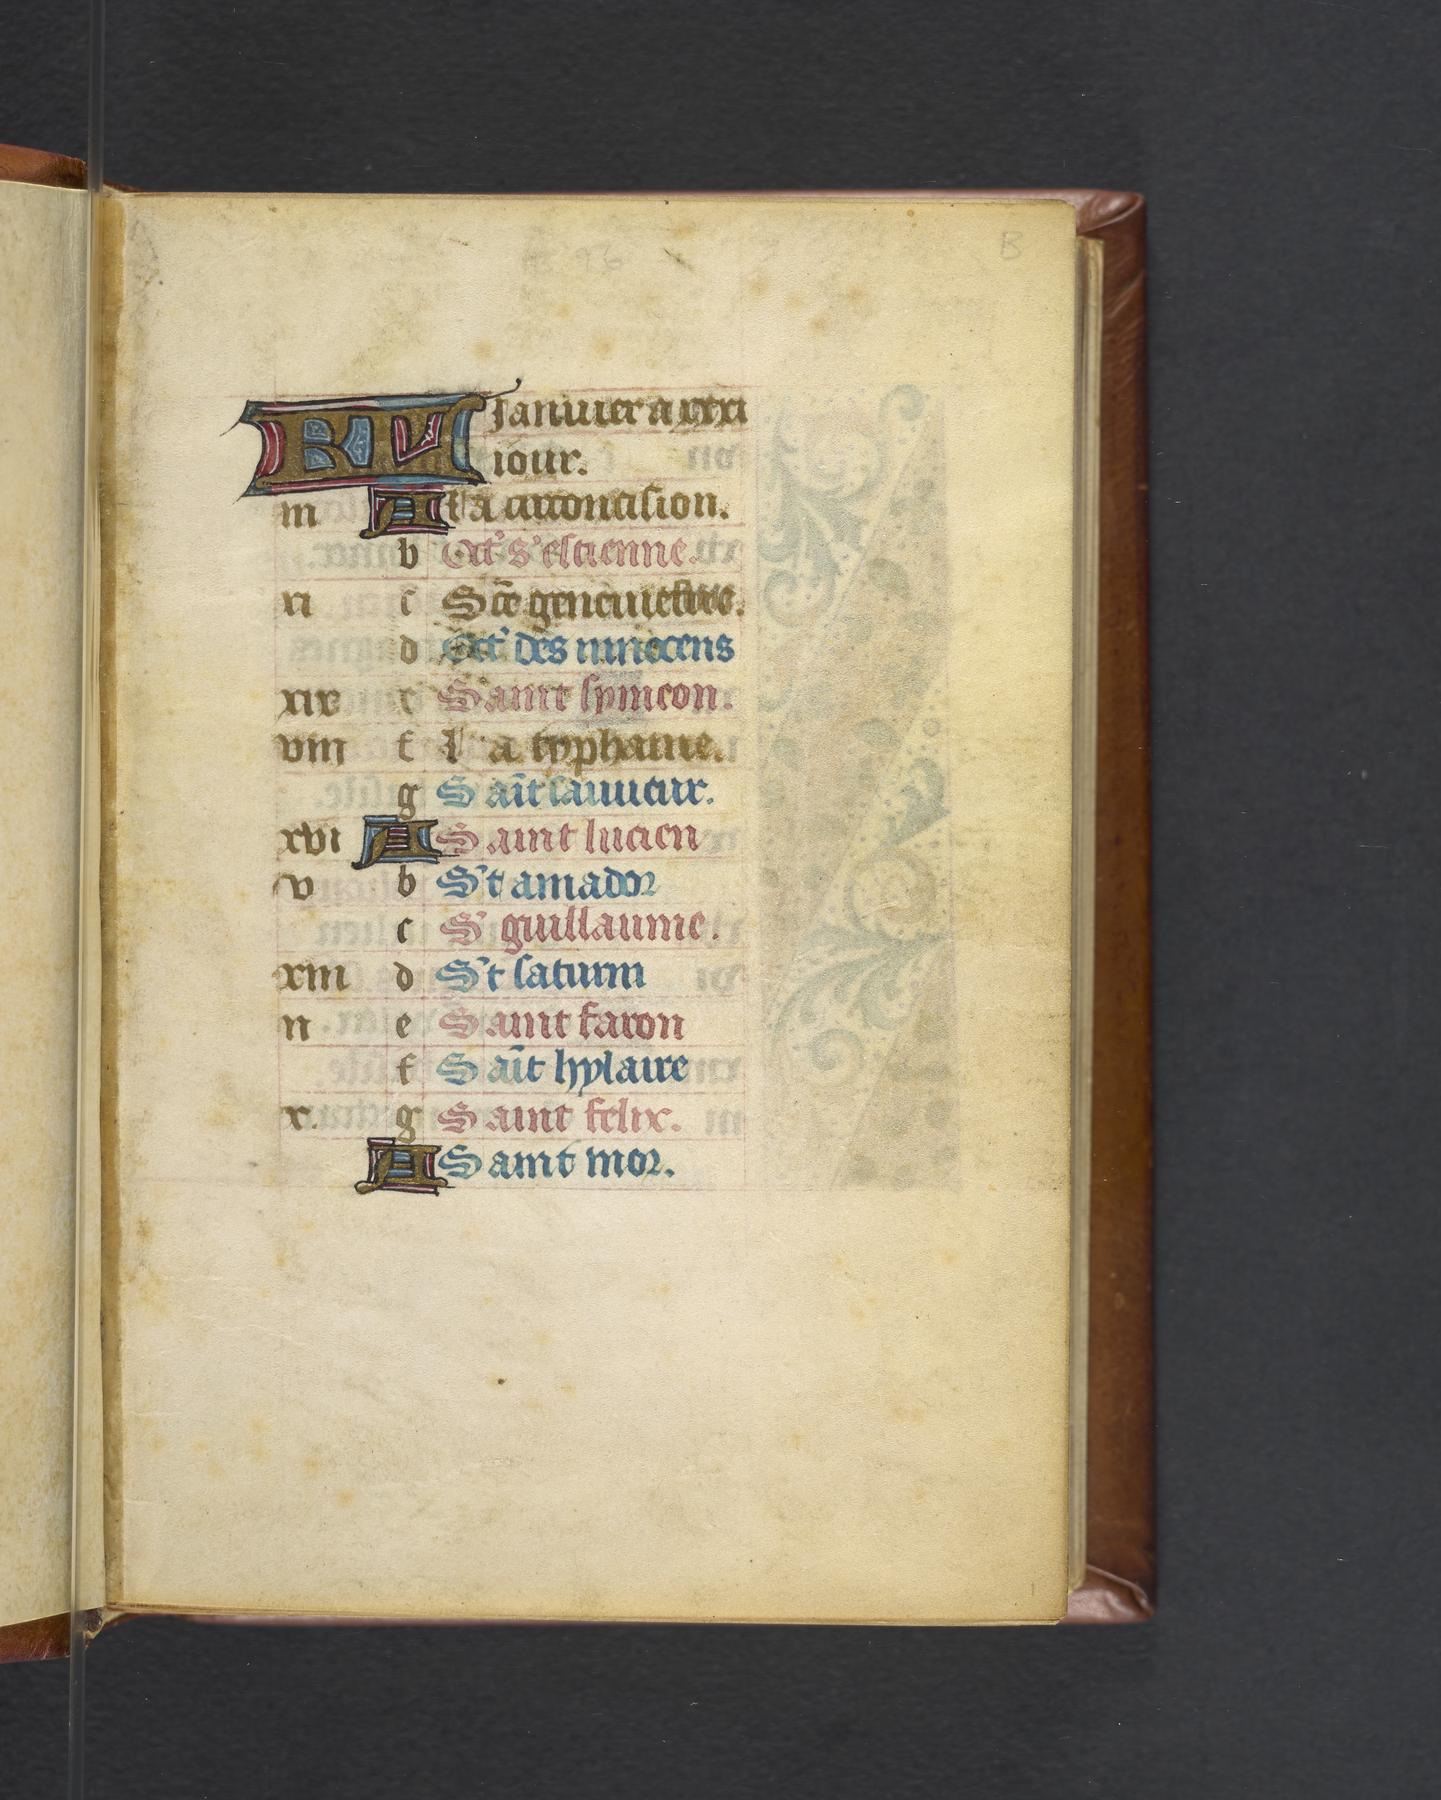 B
KL Januier a xxxi
iour.
iii A La circoncision.
b Oct' s' estienne.
xi c Sce geneuiefue.
d Oct' des innocens
xix e Saint symeon.
viii f La typhaine.
g Sait sauueur.
xvi A Saint lucien
v b S't amador
c S' guillaume.
xiii d S't saturni
ii e Saint faron
f Sait hylaire
x. g Saint felix.
A Saint mor.